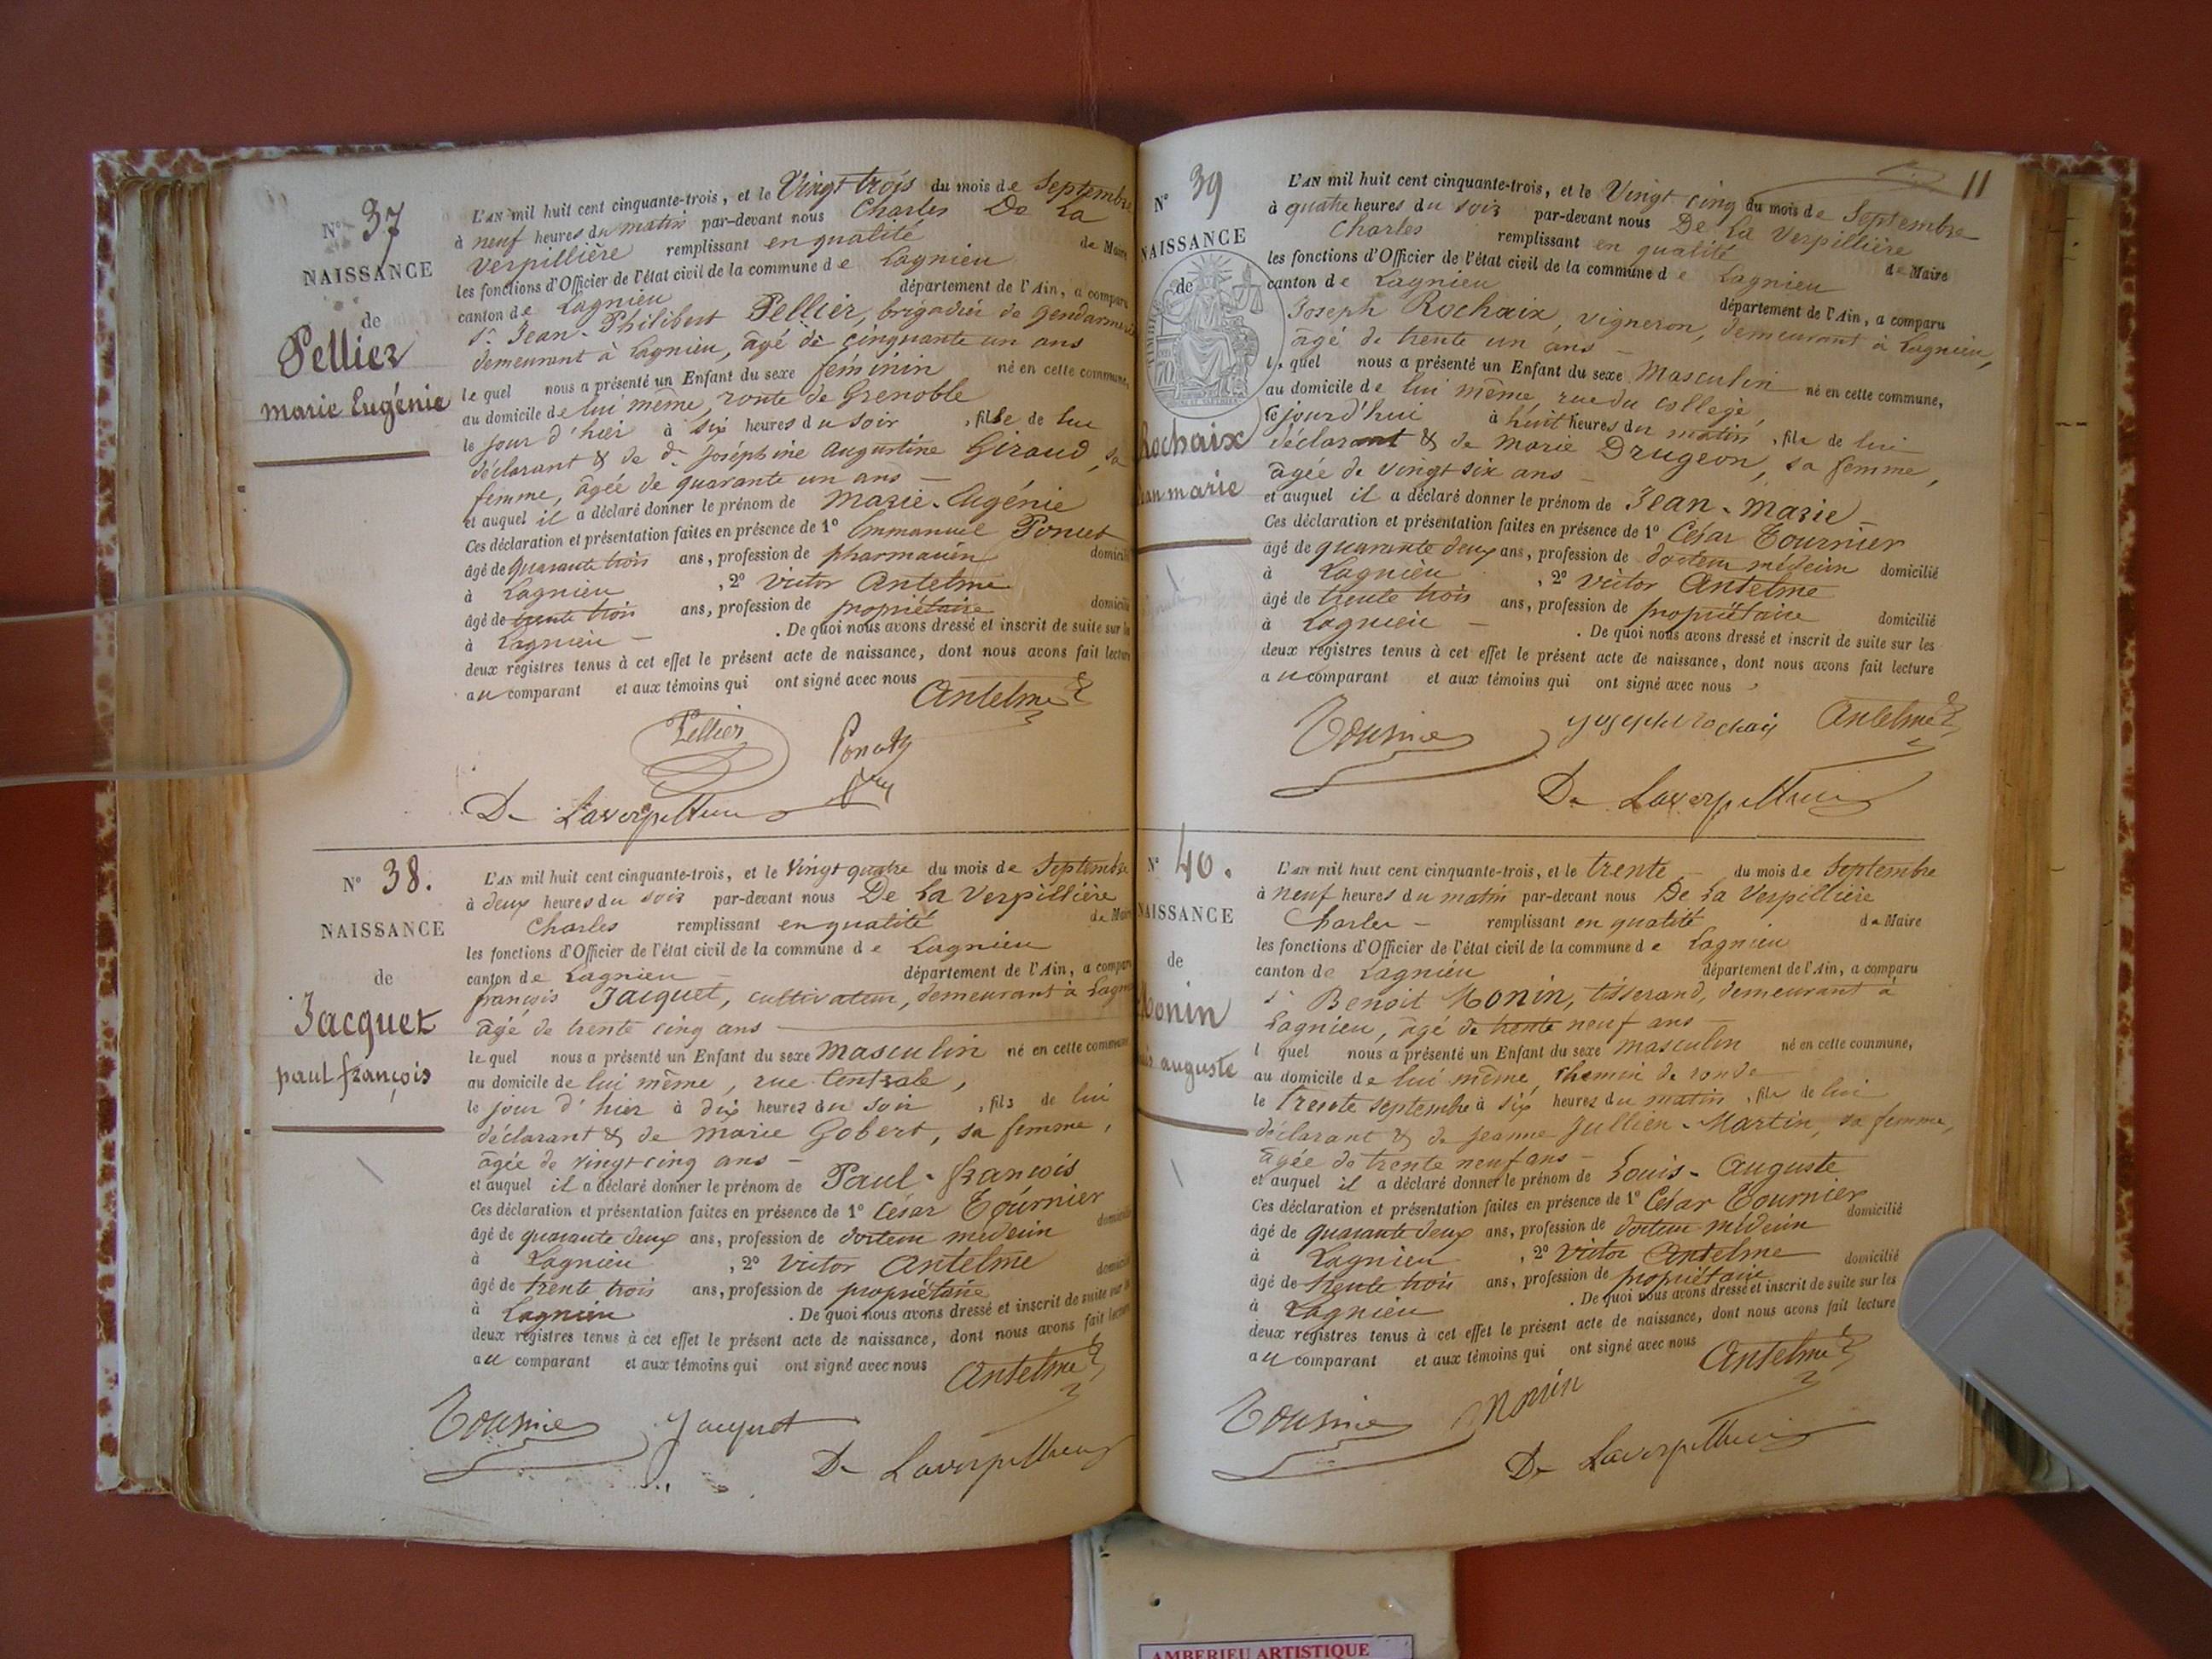 N° 37
NAISSANCE
de
Pellier
marie Eugénie
L'AN mil huit cent cinquante-trois, et le Vingt trois du mois de Septembre
à neuf heures du matin par-devant nous Charles De La
Verpillière remplissant en qualité de Maire
les fonctions d'Officier de l'état civil de la commune de Lagnieu
canton de Lagnieu département de l'Ain, a comparu
Sr. Jean-Philibert Pellier, brigadier de gendarmerie
demeurant à Lagnieu, âgé de cinquante un ans
le quel nous a présenté un Enfant du sexe féminin né en cette commune,
au domicile de lui même, route de Grenoble
le jour d'hier à six heures du soir, fille de lui
déclarant & de de. Joséphine Augustine Giraud, sa
femme, âgée de quarante un ans —
et auquel il a déclaré donner le prénom de Marie-Eugénie
Ces déclaration et présentation faites en présence de 1° Emmanuel Poncet
âgé de quarante trois ans, profession de pharmacien domicilié
à Lagnieu, 2° Victor Antelme
âgé de trente trois ans, profession de propriétaire domicilié
à Lagnieu — . De quoi nous avons dressé et inscrit de suite sur les
deux registres tenus à cet effet le présent acte de naissance, dont nous avons fait lecture
au comparant et aux témoins qui ont signé avec nous
Antelme
Pellier
Poncet
De Laverpilliere
N° 38.
NAISSANCE
de
Jacquet
paul françois
L'AN mil huit cent cinquante-trois, et le Vingt quatre du mois de Septembre
à deux heures du soir par-devant nous De La Verpillière
Charles remplissant en qualité de Maire
les fonctions d'Officier de l'état civil de la commune de Lagnieu
canton de Lagnieu — département de l'Ain, a comparu
françois Jacquet, cultivateur, demeurant à Lagnieu
âgé de trente cinq ans —
le quel nous a présenté un Enfant du sexe Masculin né en cette commune
au domicile de lui même, rue Centrale,
le jour d'hier à dix heures du soir, fils de lui
déclarant & de Marie Gobert, sa femme,
âgée de vingt cinq ans —
et auquel il a déclaré donner le prénom de Paul-François
Ces déclaration et présentation faites en présence de 1° César Tournier
âgé de quarante deux ans, profession de docteur médecin domicilié
à Lagnieu, 2° Victor Antelme
âgé de trente trois ans, profession de propriétaire domicilié
à Lagnieu . De quoi nous avons dressé et inscrit de suite sur les
deux registres tenus à cet effet le présent acte de naissance, dont nous avons fait lecture
au comparant et aux témoins qui ont signé avec nous
Antelme
Tournier Jacquet
De Laverpilliere
11
N° 39
NAISSANCE
de
Rochaix
Jean marie
L'AN mil huit cent cinquante-trois, et le Vingt cinq du mois de Septembre
à quatre heures du soir par-devant nous De La Verpillière
Charles remplissant en qualité de Maire
les fonctions d'Officier de l'état civil de la commune de Lagnieu
canton de Lagnieu département de l'Ain, a comparu
Joseph Rochaix, vigneron, demeurant à Lagnieu,
âgé de trente un ans —
le quel nous a présenté un Enfant du sexe Masculin né en cette commune,
au domicile de lui même, rue du collège,
ce jourd'hui à huit heures du matin, fils de lui
déclarant & de Marie Drugeon, sa femme,
âgée de vingt six ans —
et auquel il a déclaré donner le prénom de Jean-Marie
Ces déclaration et présentation faites en présence de 1° César Tournier
âgé de quarante deux ans, profession de docteur médecin domicilié
à Lagnieu, 2° Victor Antelme
âgé de trente trois ans, profession de propriétaire domicilié
à Lagnieu — . De quoi nous avons dressé et inscrit de suite sur les
deux registres tenus à cet effet le présent acte de naissance, dont nous avons fait lecture
au comparant et aux témoins qui ont signé avec nous
Tournier joseph rochaix Antelme
De Laverpilliere
N° 40.
NAISSANCE
de
Monin
Louis auguste
L'AN mil huit cent cinquante-trois, et le trente — du mois de Septembre
à neuf heures du matin par-devant nous De La Verpillière
Charles — remplissant en qualité de Maire
les fonctions d'Officier de l'état civil de la commune de Lagnieu
canton de Lagnieu département de l'Ain, a comparu
Sr. Benoit Monin, tisserand, demeurant à
Lagnieu, âgé de trente neuf ans —
l quel nous a présenté un Enfant du sexe masculin né en cette commune,
au domicile de lui même, chemin de ronde
le trente septembre à six heures du matin, fils de lui
déclarant & de Jeanne Jullien-Martin, sa femme,
âgée de trente neuf ans —
et auquel il a déclaré donner le prénom de Louis-Auguste
Ces déclaration et présentation faites en présence de 1° César Tournier
âgé de quarante deux ans, profession de docteur médecin domicilié
à Lagnieu, 2° Victor Antelme
âgé de trente trois ans, profession de propriétaire domicilié
à Lagnieu . De quoi nous avons dressé et inscrit de suite sur les
deux registres tenus à cet effet le présent acte de naissance, dont nous avons fait lecture
au comparant et aux témoins qui ont signé avec nous
Antelme
Tournier Monin
De Laverpilliere
AMBERIEU ARTISTIQUE